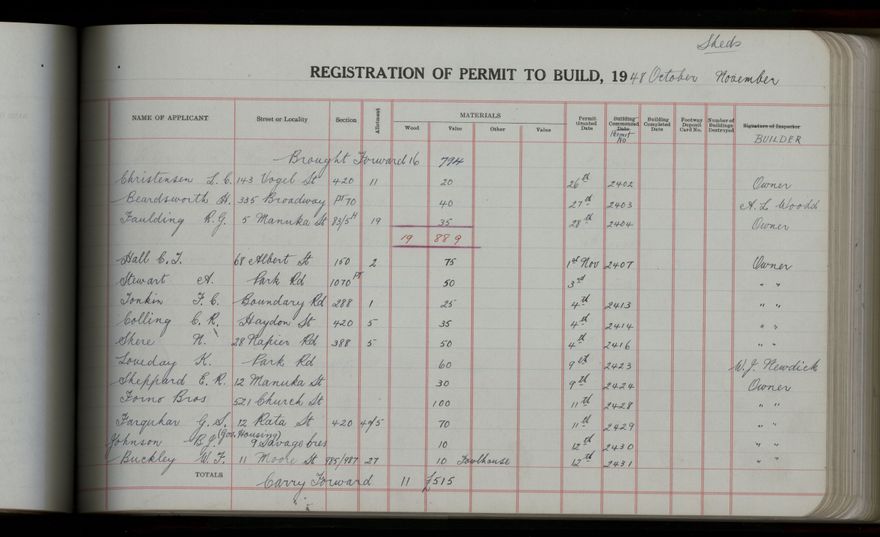 Sheds
REGISTRATION OF PERMIT TO BUILD, 1948 October November
NAME OF APPLICANT Street or Locality Section Allotment MATERIALS Wood Value Other Value Permit Granted Date Building Commenced Date Permit No Building Completed Date Footway Deposit Card No. Number of Buildings Destroyed Signature of Inspector BUILDER
Brought Forward 16 794
Christensen L. C. 143 Vogel St 420 11 20 26th 2402 Owner
Beardsworth H. 335 Broadway Pt 70 40 27th 2403 A. L. Woods
Faulding R. G. 5 Manuka St 83/5H 19 35 28th 2404 Owner
19 889
Hall C. J. 68 Albert St 150 2 75 1st Nov 2407 Owner
Stewart A. Park Rd 1070 PT 50 3rd " "
Tonkin F. C. Boundary Rd 288 1 25 4th 2413 " "
Colling C. R. Haydon St 420 5 35 4th 2414 " "
Shere N. 28 Napier Rd 388 5 50 4th 2416 " "
Loveday K. Park Rd 60 9th 2423 W. J. Newdick
Sheppard E. R. 12 Manuka St 30 9th 2424 Owner
Forno Bros 521 Church St 100 11th 2428 " "
Farquhar G. S. 12 Rata St 420 45 70 11th 2429 " "
Johnson B. J. (Gov. Housing) 9 Savage Cres 10 12th 2430 " "
Buckley W. F. 11 Moore St 985/987 27 10 Fowlhouse 12th 2431 " "
TOTALS Carry Forward 11 £515